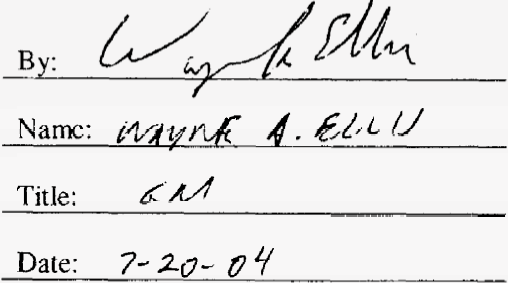 By: Wayne A Ellis
Name: WAYNE A. ELLIS
Title: GM
Date: 7-20-04